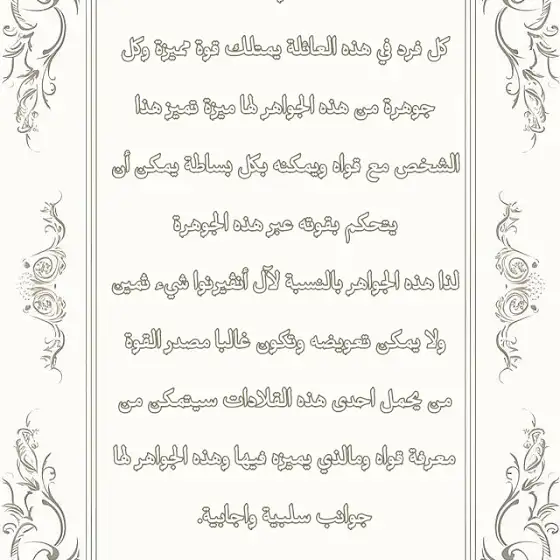 كل فرد في هذه العائلة يمتلك قوة مميزة وكل
جوهرة من هذه الجواهر لها ميزة تميز هذا
الشخص مع قواه ويمكنه بكل بساطة يمكن أن
يتحكم بقوته عبر هذه الجوهرة
لذا هذه الجواهر بالنسبة لآل أنڤيرنوا شيء ثمين
ولا يمكن تعويضه وتكون غالبا مصدر القوة
من يحمل احدى هذه القلادات سيتمكن من
معرفة قواه ومالذي يميزه فيها وهذه الجواهر لها
جوانب سلبية واجابية.